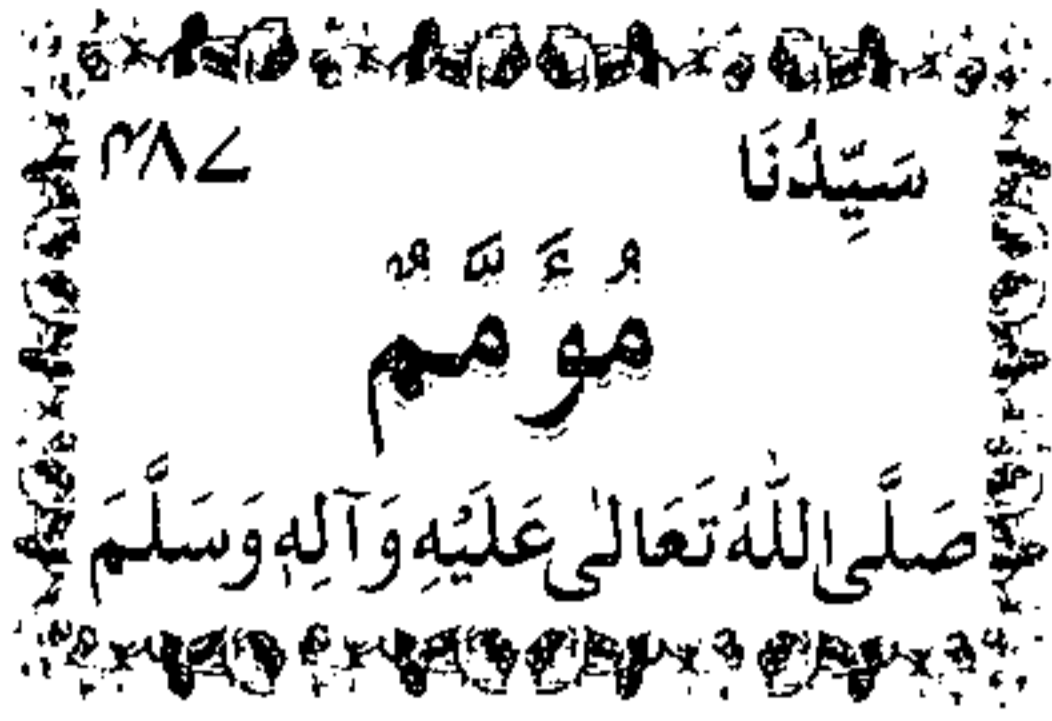 سَيِّدُنَا ۳۸۷
مُؤَمَّمٌ
صَلَّى اللّٰهُ تَعَالٰى عَلَيْهِ وَآلِهٖ وَسَلَّمَ